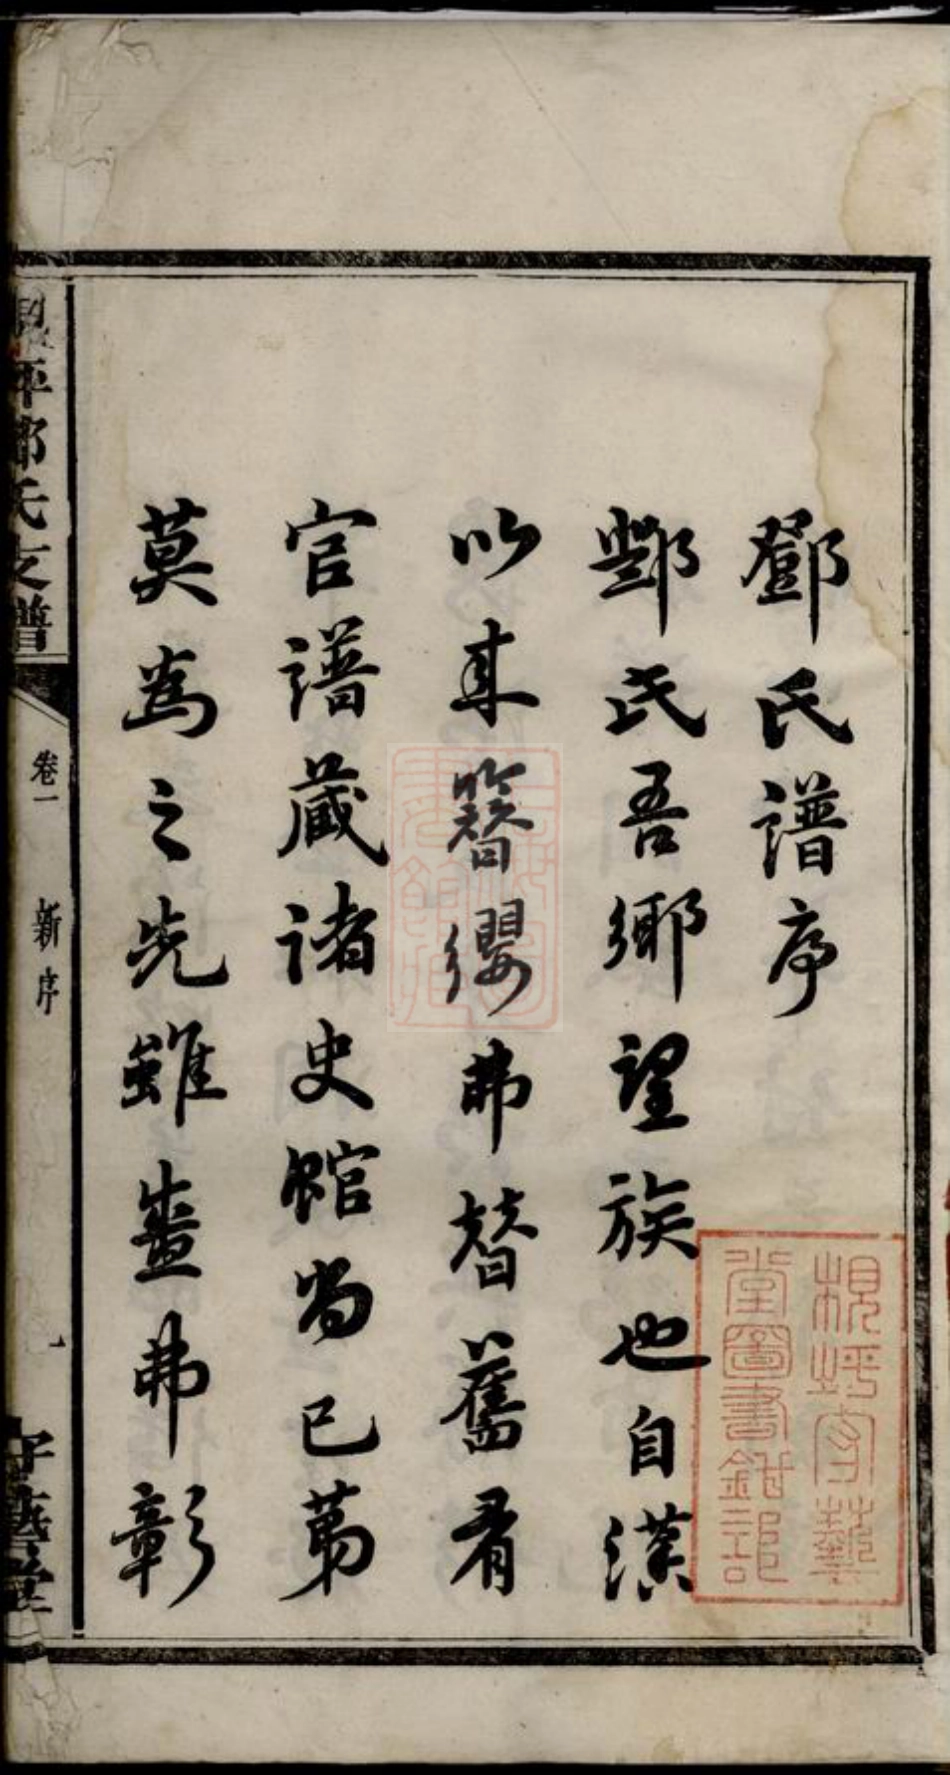 鄧氏譜序
鄧氏吾鄉望族也自漢
以來簪纓弗替舊有
官譜藏諸史館尚已第
莫為之先雖盛弗彰
規坪守藝
堂圖書鉗記
坪鄧氏支譜
卷一
新序
一
守藝堂